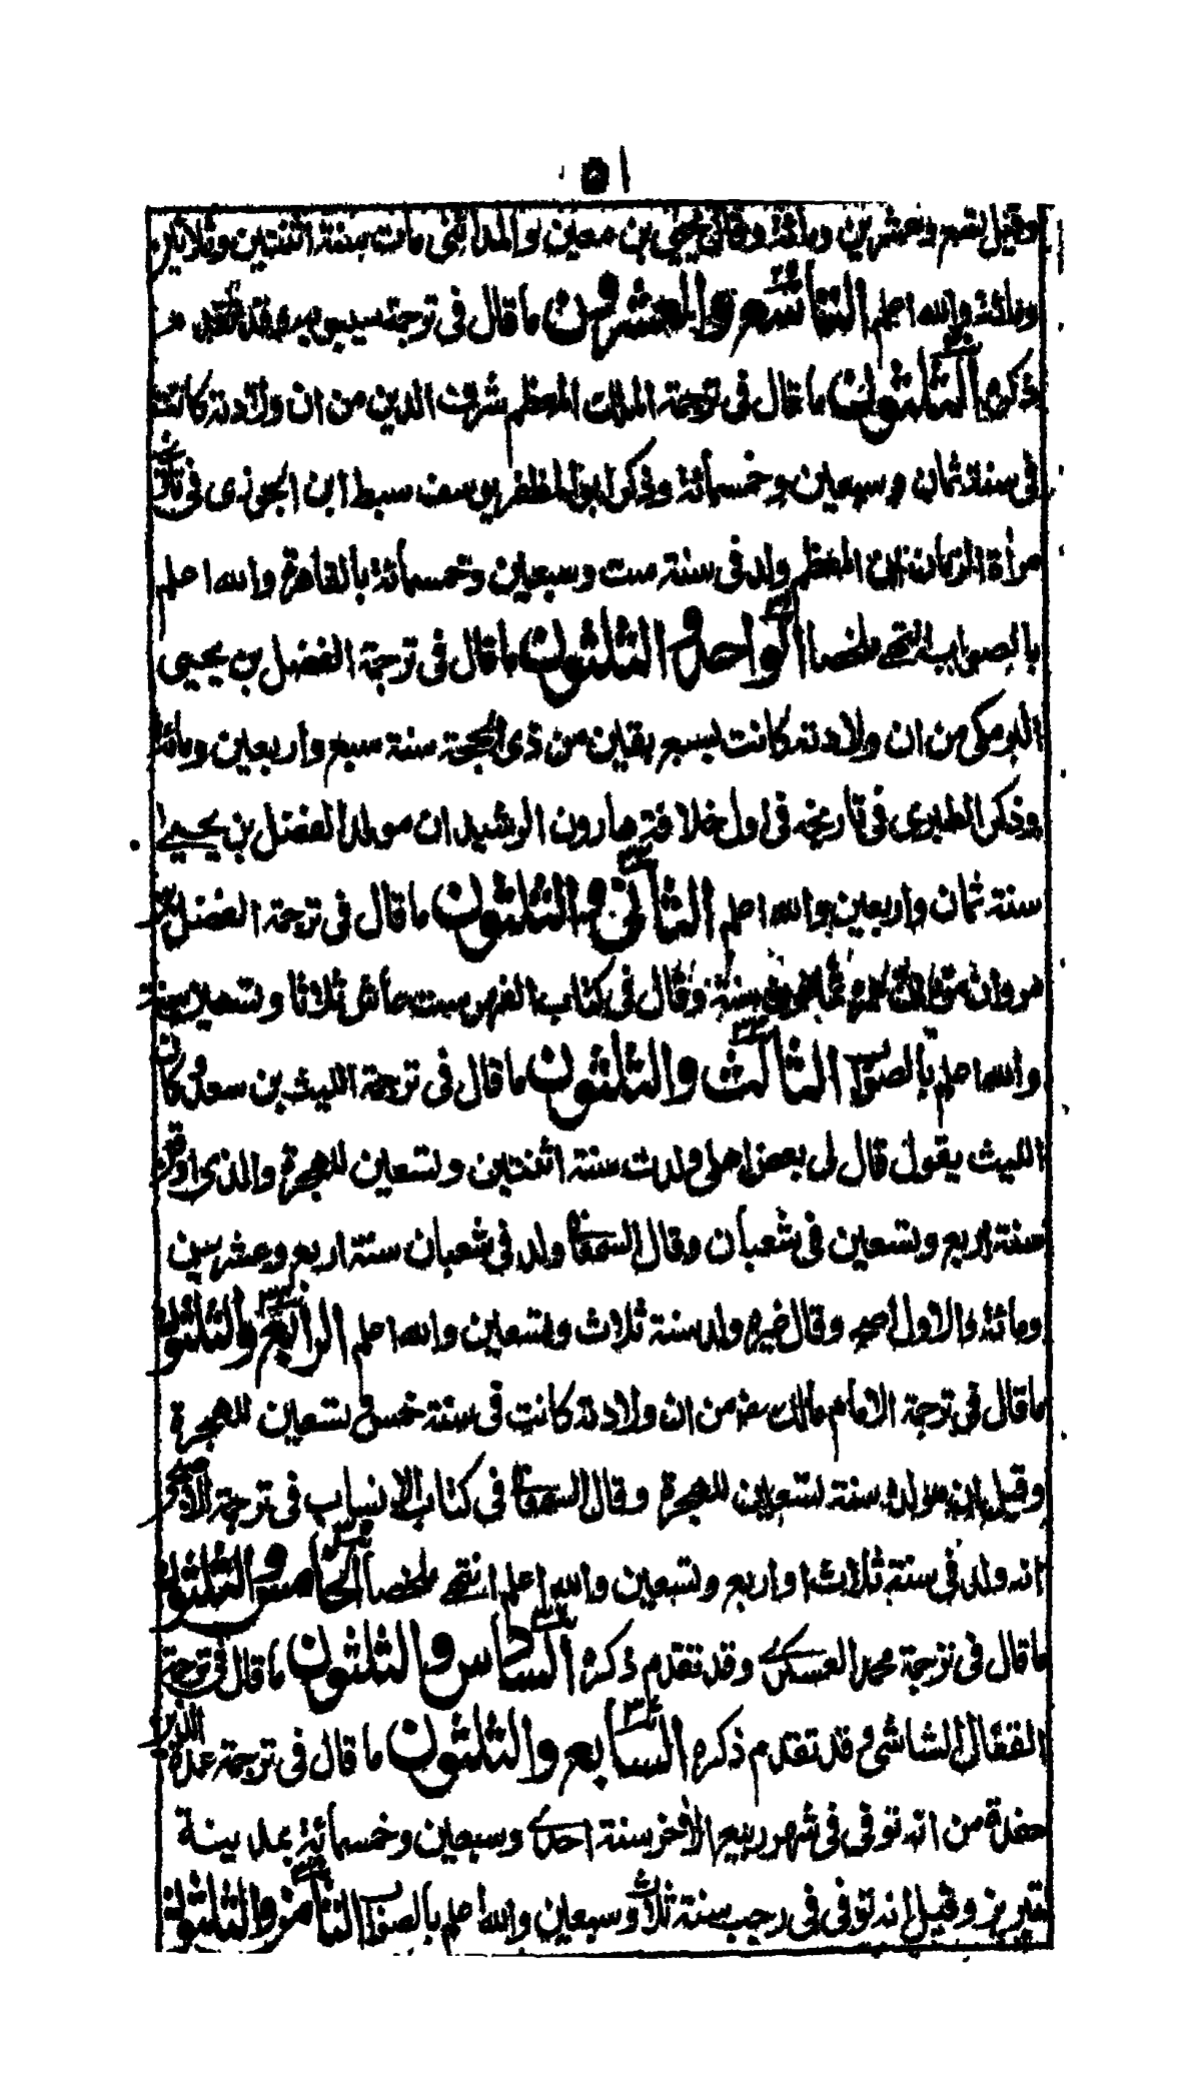 ٥١
وقيل تسع وعشرين ومائة وقال يحيى بن معين والمدائنى مات سنة اثنتين وثلاثين
ومائة والله اعلم التاسع والعشرون ما قال فى ترجمة سيبويه وقد تقدم
ذكره الثلثون ما قال فى ترجمة الملك المعظم شرف الدين من ان ولادته كانت
فى سنة ثمان وسبعين وخمسمائة وذكر ابو المظفر يوسف سبط ابن الجوزى فى تاريخه
مرأة الزمان ان المعظم ولد فى سنة ست وسبعين وخمسمائة بالقاهرة والله اعلم
بالصواب انتهى ملخصا الواحد والثلثون ما قال فى ترجمة الفضل بن يحيى
البرمكى من ان ولادته كانت لسبع بقين من ذى الحجة سنة سبع واربعين ومائة
وذكر الطبرى فى تاريخه فى اول خلافة هارون الرشيد ان مولد الفضل بن يحيى
سنة ثمان واربعين والله اعلم الثانى والثلثون ما قال فى ترجمة الفضل بن
مروان سنة وقال فى كتاب الفهرست عاش ثلاثا وتسعين سنة
والله اعلم بالصواب الثالث والثلثون ما قال فى ترجمة الليث بن سعد وكان
الليث يقول قال لى بعض اهلى ولدت سنة اثنتين وتسعين للهجرة والذى اوقن
سنة اربع وتسعين فى شعبان وقال السمعانى ولد فى شعبان سنة اربع وعشرين
ومائة والاول اصح وقال غيره ولد سنة ثلاث وتسعين والله اعلم الرابع والثلثون
ما قال فى ترجمة الامام مالك من ان ولادته كانت فى سنة خمس وتسعين للهجرة
وقيل ان مولده سنة تسعين للهجرة وقال السمعانى فى كتاب الانساب فى ترجمة الاصبحى
انه ولد فى سنة ثلاث او اربع وتسعين والله اعلم انتهى ملخصا الخامس والثلثون
ما قال فى ترجمة محمد العسكرى وقد تقدم ذكره السادس والثلثون ما قال فى ترجمة
القفال الشاشى وقد تقدم ذكره السابع والثلثون ما قال فى ترجمة عمدة الدين
حفدة من انه توفى فى شهر ربيع الاخر سنة احدى وسبعين وخمسمائة بمدينة
تبريز وقيل انه توفى فى رجب سنة ثلاث وسبعين والله اعلم بالصواب الثامن والثلثون